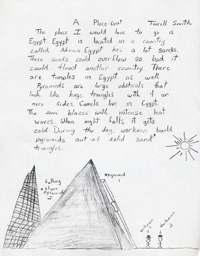 A Place
Terell Smith
The place I would love to go is
Egypt. Egypt is located in a country
called Africa. Egypt has a lot sands.
These sands could overflow so bad it
could flood another country. There
are temples in Egypt as well.
Pyramids are large obstacals that
look like huge triangles with 4 or
more sides. Camels live in Egypt.
The sun blazes with intense heat
waves. When night falls, it gets
cold. During the day, workers build
pyramids out of solid sand
triangles.
pyramid